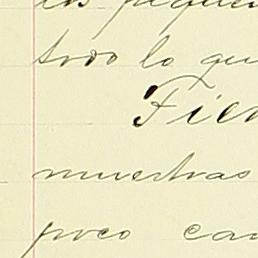 los peque
todo lo que
Tien
muestras
poco ca